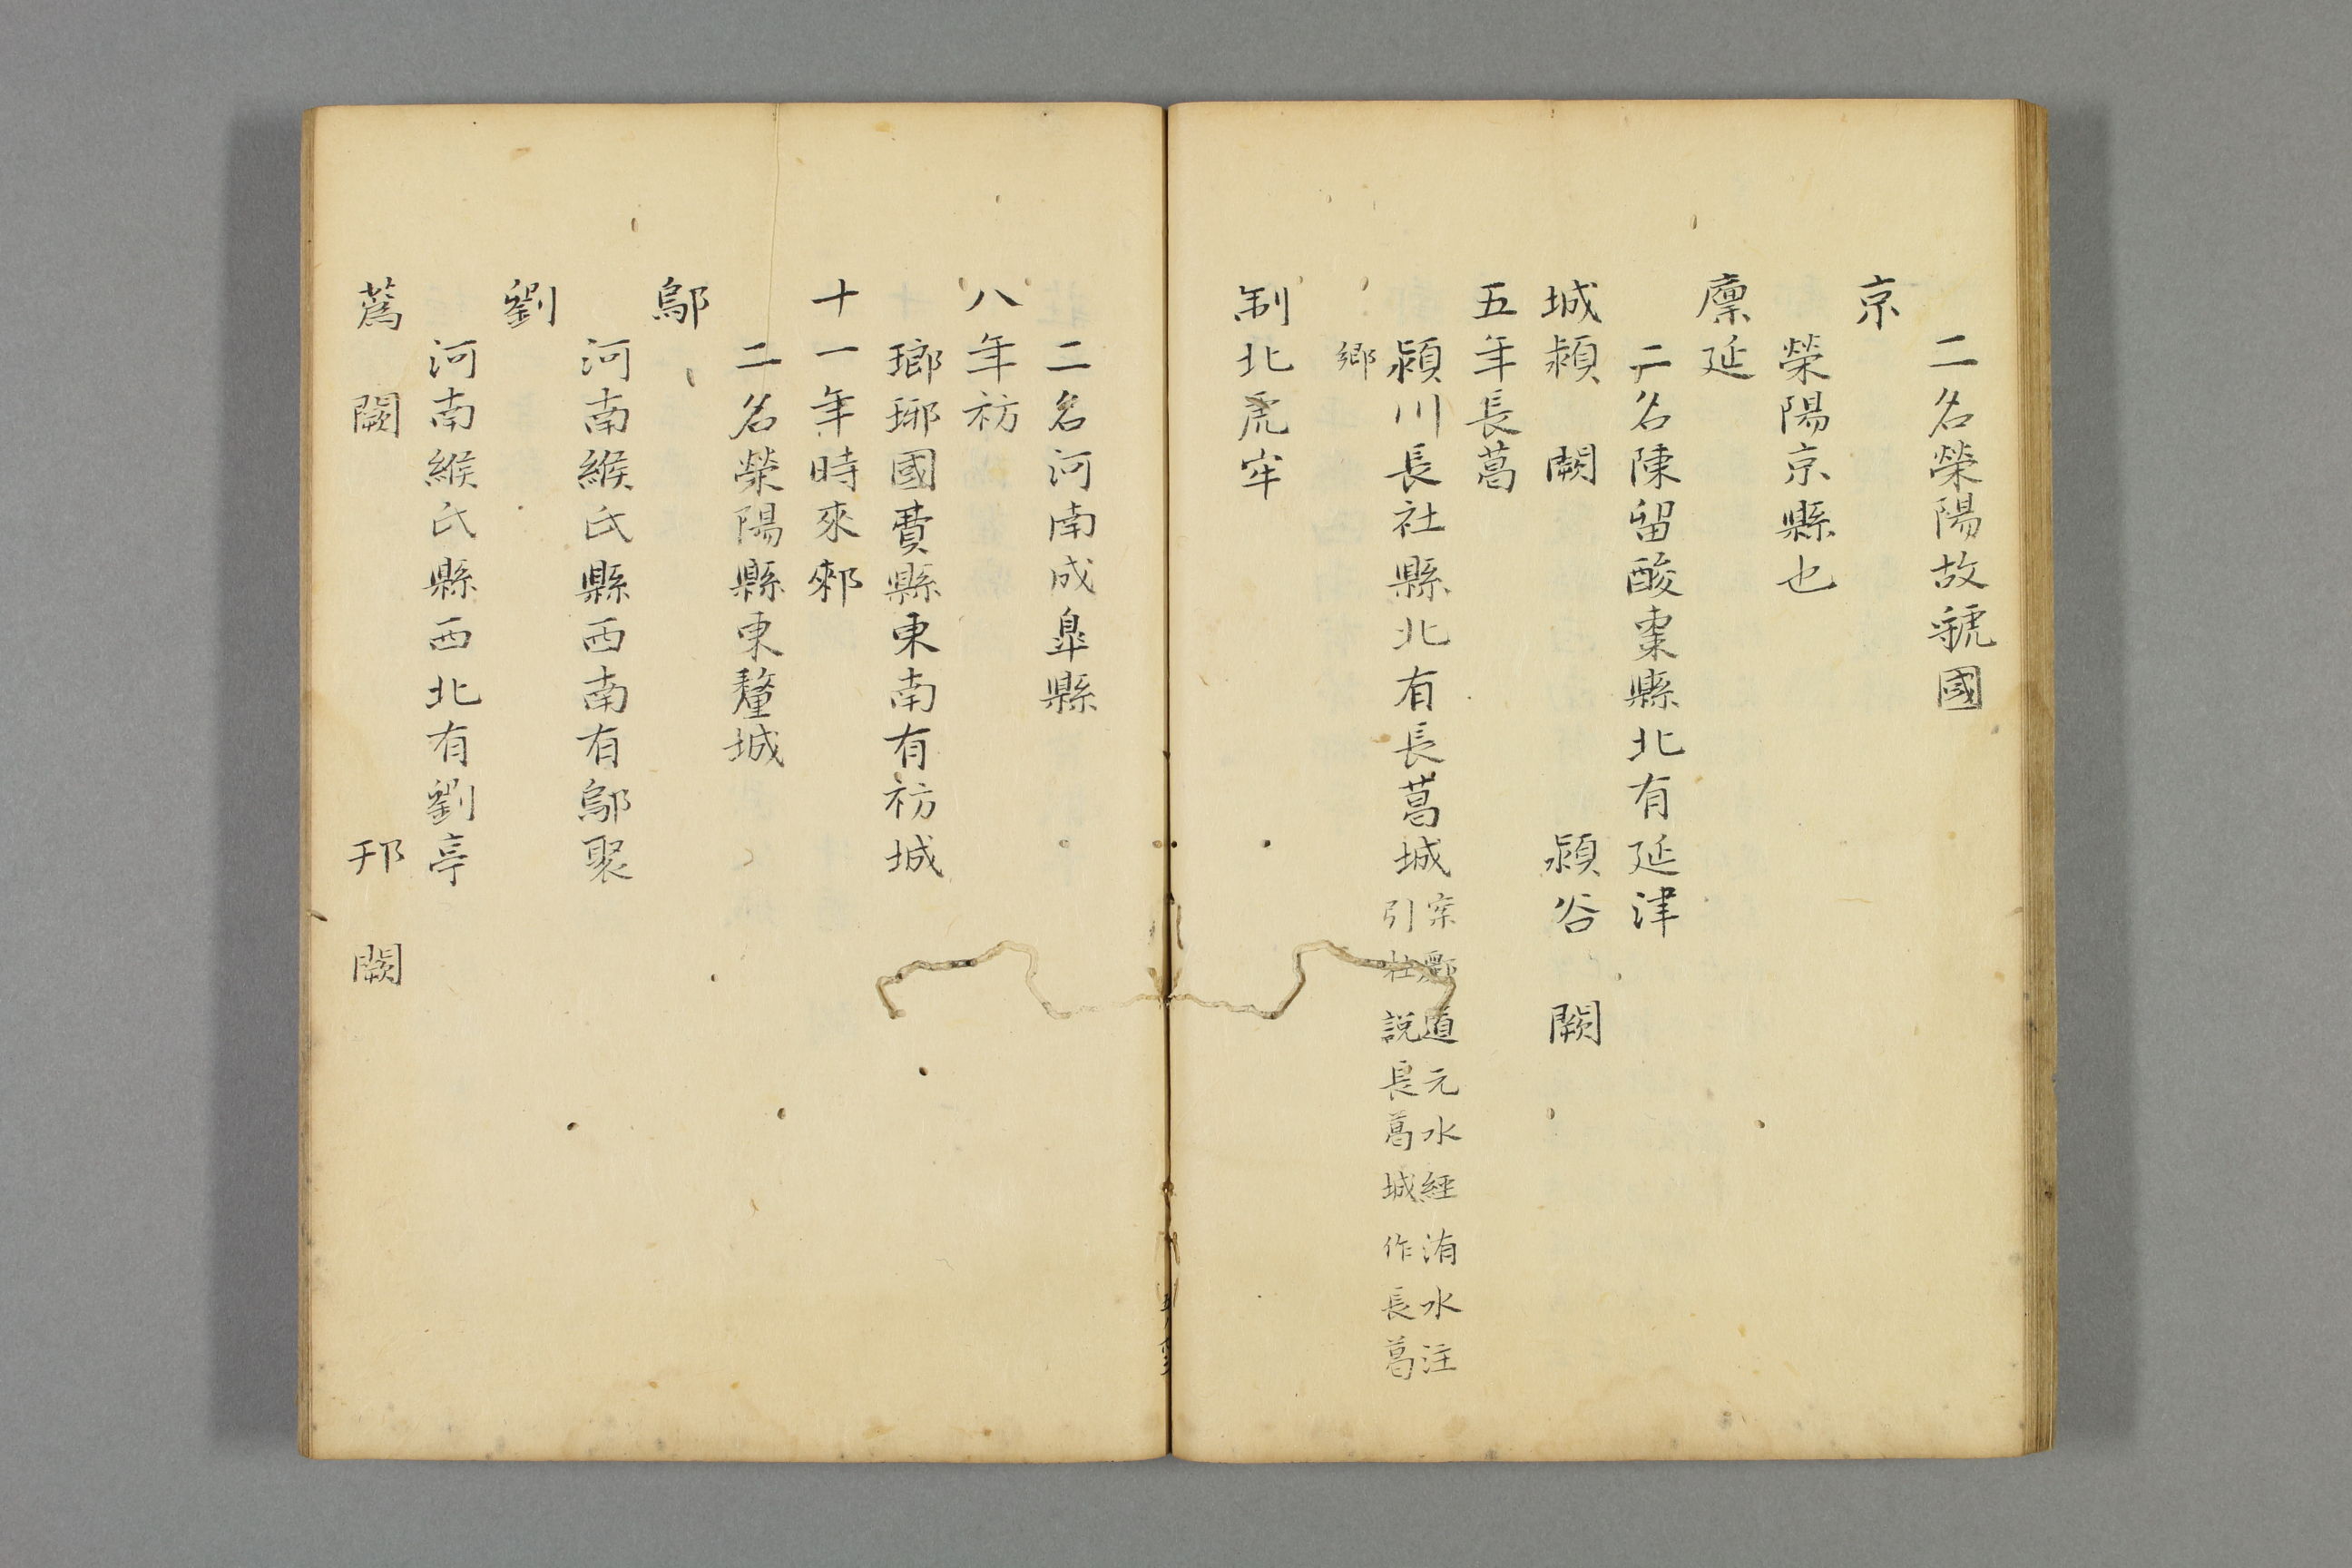 二名榮陽故虢國
京
榮陽京縣也
廩延
二名陳留酸棗縣北有延津
城潁 闕 潁谷 闕
五年長葛
潁川長社縣北有長葛城
案酈道元水經洧水注
引杜說長葛城作長葛
鄉
制北虎牢
二名河南成皐縣
八年祊
瑯琊國費縣東南有祊城
十一年時來郲
二名榮陽縣東釐城
鄔
河南緱氏縣西南有鄔聚
劉
河南緱氏縣西北有劉亭
蔿 闕 邘 闕